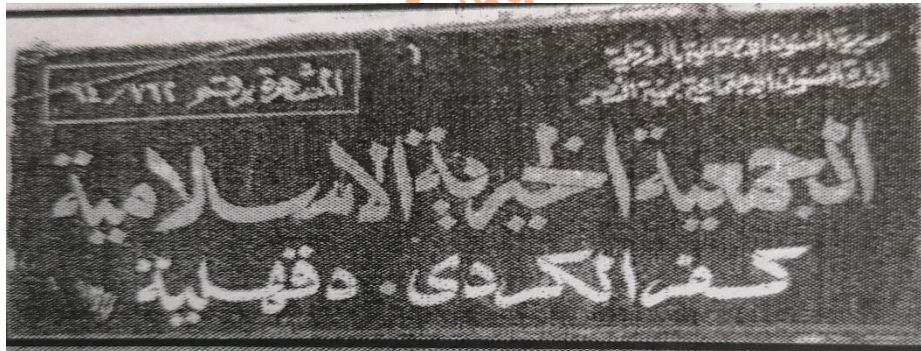 مديرية الشئون الاجتماعية بالدقهلية
ادارة الشئون الاجتماعية بمنية النصر
المشهرة برقم
الجمعية الخيرية الاسلامية
كفر الكردى . دقهلية